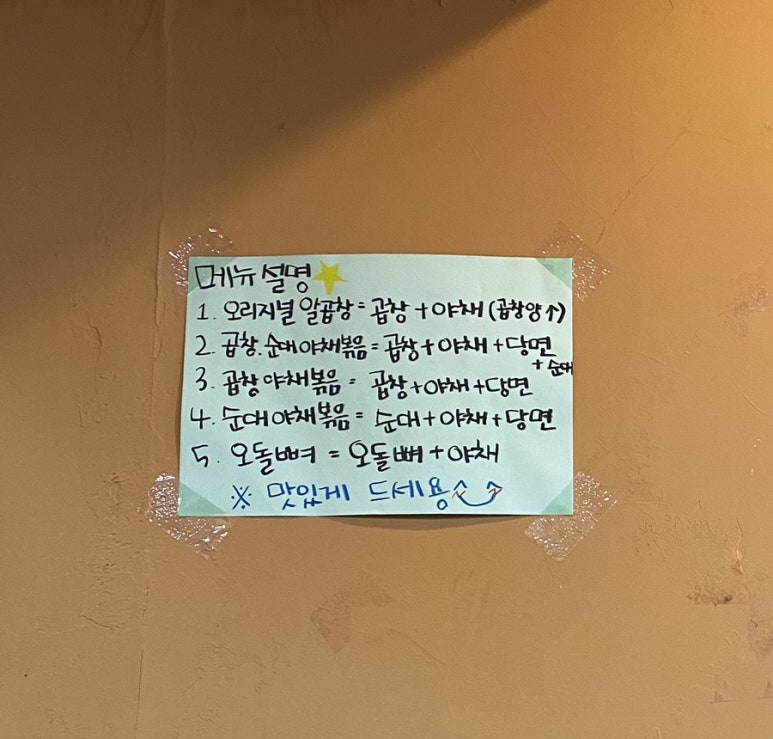 메뉴 설명
1. 오리지널 알곱창 = 곱창 + 야채 (곱창양↑)
2. 곱창.순대야채볶음 = 곱창 + 야채 + 당면 + 순대
3. 곱창야채볶음 = 곱창 + 야채 + 당면
4. 순대야채볶음 = 순대 + 야채 + 당면
5. 오돌뼈 = 오돌뼈 + 야채
※ 맛있게 드세용